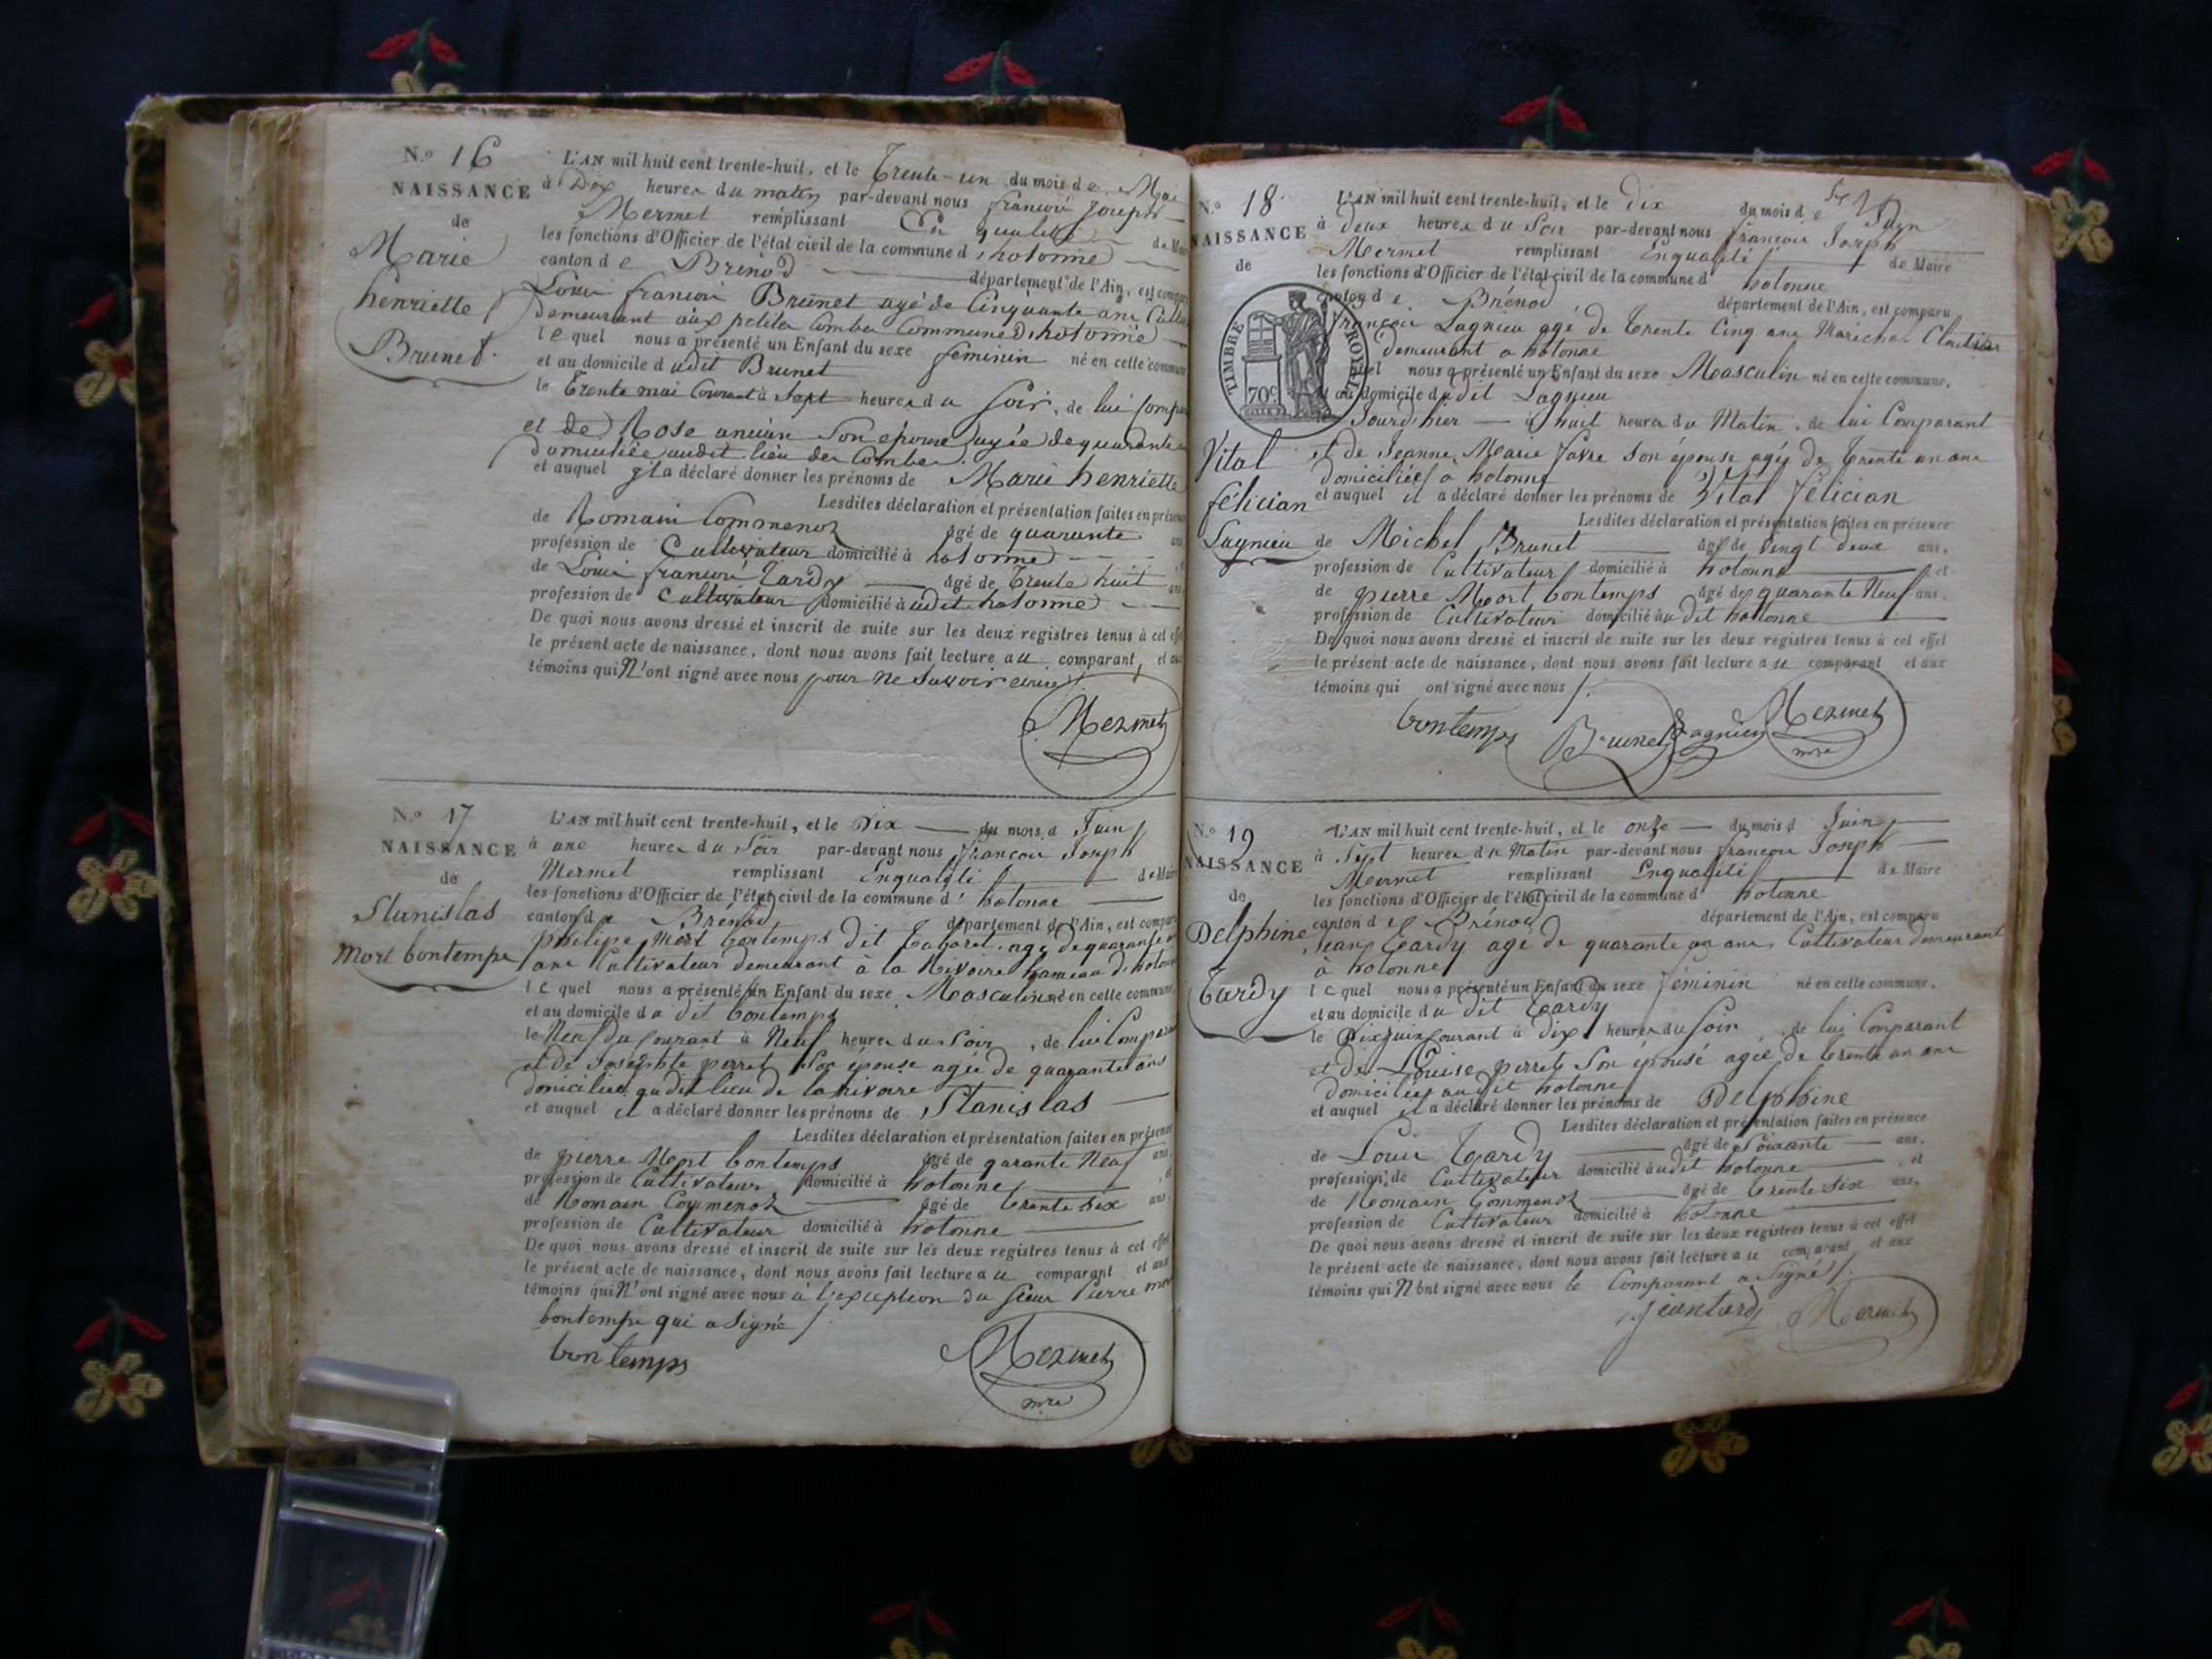 N.º 16
NAISSANCE
de
Marie
henriette
Brunet
L'AN mil huit cent trente-huit, et le Trente-un du mois de Mai
à Dix heures du matin par-devant nous françois Joseph
Mermet remplissant En qualité de Maire
les fonctions d'Officier de l'état civil de la commune d hotonne
canton de Brénod département de l'Ain, est comparu
Louis françois Brunet agé de Cinquante ans
demeurant aux petites Combes Commune d hotonne
lequel nous a présenté un Enfant du sexe feminin né en cette commune
et au domicile dudit Brunet
le Trente mai Courant à Sept heures du Soir, de lui
et de Rose ancian Son épouse agée de quarante
domiciliée audit lieu des Combes
et auquel il a déclaré donner les prénoms de Marie henriette
Lesdites déclaration et présentation faites en présence
de Romain Commenoz âgé de quarante ans
profession de Cultivateur domicilié à hotonne
de Louis françois Tardy âgé de Trente huit
profession de Cultivateur domicilié à udit hotonne
De quoi nous avons dressé et inscrit de suite sur les deux registres tenus à cet effet
le présent acte de naissance, dont nous avons fait lecture au comparant, et aux
témoins qui N'ont signé avec nous pour ne Savoir écrire
Mermet
N.º 17
NAISSANCE
de
Stanislas
Mort bontemps
L'AN mil huit cent trente-huit, et le Dix du mois d Juin
à une heures du Soir par-devant nous françois Joseph
Mermet remplissant Enqualité de Maire
les fonctions d'Officier de l'état civil de la commune d' hotonne
canton de Brénod département de l'Ain, est comparu
philipe Mort bontemps dit agé de quarante
ans Cultivateur demeurant à la Rivoire hameau d'hotonne
lequel nous a présenté un Enfant du sexe Masculin né en cette commune
et au domicile du dit bontemps
le Neuf du Courant à Neuf heures du Soir, de lui Comparant
et de Josephte perret Son épouse agée de quarante ans
domiciliée au dit lieu de la rivoire
et auquel il a déclaré donner les prénoms de Stanislas
Lesdites déclaration et présentation faites en présence
de pierre Mort bontemps âgé de quarante Neuf ans
profession de Cultivateur domicilié à hotonne, et
de Romain Commenoz âgé de trente six ans
profession de Cultivateur domicilié à hotonne
De quoi nous avons dressé et inscrit de suite sur les deux registres tenus à cet effet
le présent acte de naissance, dont nous avons fait lecture au comparant et aux
témoins qui N'ont signé avec nous à l'exception du Sieur Pierre mort
bontemps qui a Signé
bontemps
Mermet
mre
N.º 18
NAISSANCE
de
TIMBRE ROYAL
70c
Vital
félician
Lagnieu
L'AN mil huit cent trente-huit, et le dix du mois de Juin
à deux heures du Soir par-devant nous françois Joseph
Mermet remplissant Enqualité de Maire
les fonctions d'Officier de l'état civil de la commune d' hotonne
canton de Brénod département de l'Ain, est comparu
françois Lagnieu agé de Trente Cinq ans
demeurant a hotonne
lequel nous a présenté un Enfant du sexe Masculin né en cette commune,
et au domicile dudit Lagnieu
à huit heures du Matin, de lui Comparant
et de Jeanne Marie favre Son épouse agée de Trente un ans
domiciliée a hotonne
et auquel il a déclaré donner les prénoms de Vital félician
Lesdites déclaration et présentation faites en présence
de Michel Brunet âgé de Vingt deux ans,
profession de Cultivateur domicilié à hotonne, et
de pierre Mort bontemps âgé de quarante Neuf ans,
profession de Cultivateur domicilié audit hottonne
De quoi nous avons dressé et inscrit de suite sur les deux registres tenus à cet effet
le présent acte de naissance, dont nous avons fait lecture au comparant et aux
témoins qui ont signé avec nous
bontemps Brunet Lagnieu Mermet
mre
N.º 19
NAISSANCE
de
Delphine
Tardy
L'AN mil huit cent trente-huit, et le onze du mois d Juin
à Sept heures du Matin par-devant nous françois Joseph
Mermet remplissant Enqualité de Maire
les fonctions d'Officier de l'état civil de la commune d' hotonne
canton de Brénod département de l'Ain, est comparu
Jean Tardy agé de quarante un ans, Cultivateur demeurant
à hotonne
lequel nous a présenté un Enfant du sexe féminin né en cette commune,
et au domicile du dit Tardy
le Dix juin Courant à dix heures du Soir, de lui Comparant
et de Louise perret Son épouse agée de trente un ans
domiciliée au dit hotonne
et auquel il a déclaré donner les prénoms de Delphine
Lesdites déclaration et présentation faites en présence
de Louis Tardy âgé de Soixante ans,
profession de Cultivateur domicilié audit hotonne, et
de Romain Commenoz âgé de trente six ans,
profession de Cultivateur domicilié à hotonne
De quoi nous avons dressé et inscrit de suite sur les deux registres tenus à cet effet
le présent acte de naissance, dont nous avons fait lecture au comparant et aux
témoins qui N'ont signé avec nous le Comparant a Signé
jean tardy Mermet